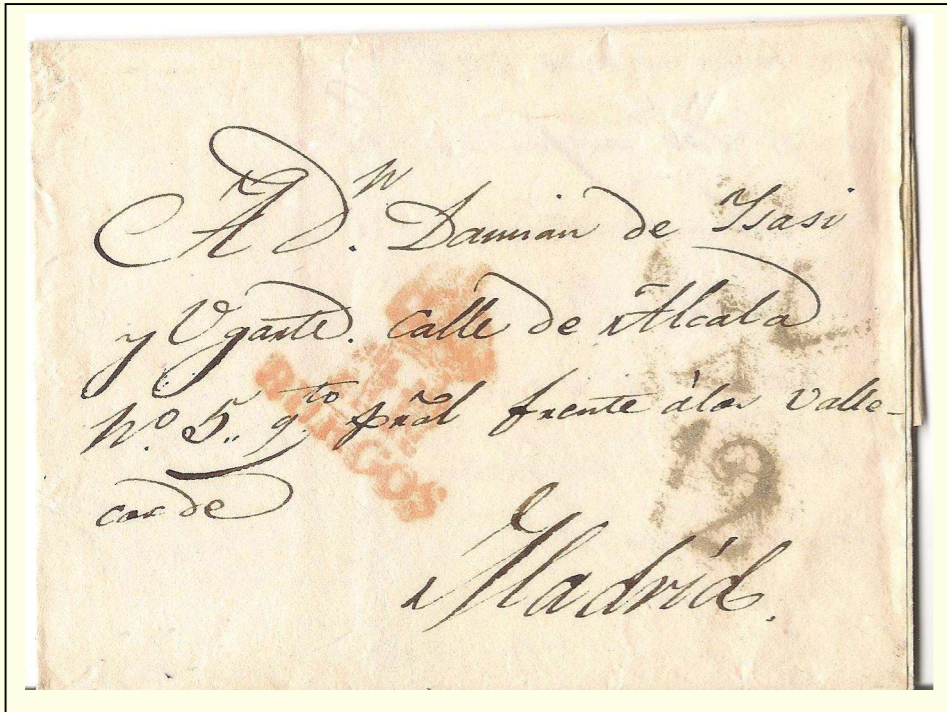 A D.n Damian de Ysasi
y Ugarte. Calle de Alcala
N.o 5,, q.to pñal frente á las Valle-
cas de
Madrid.
BURGOS
12